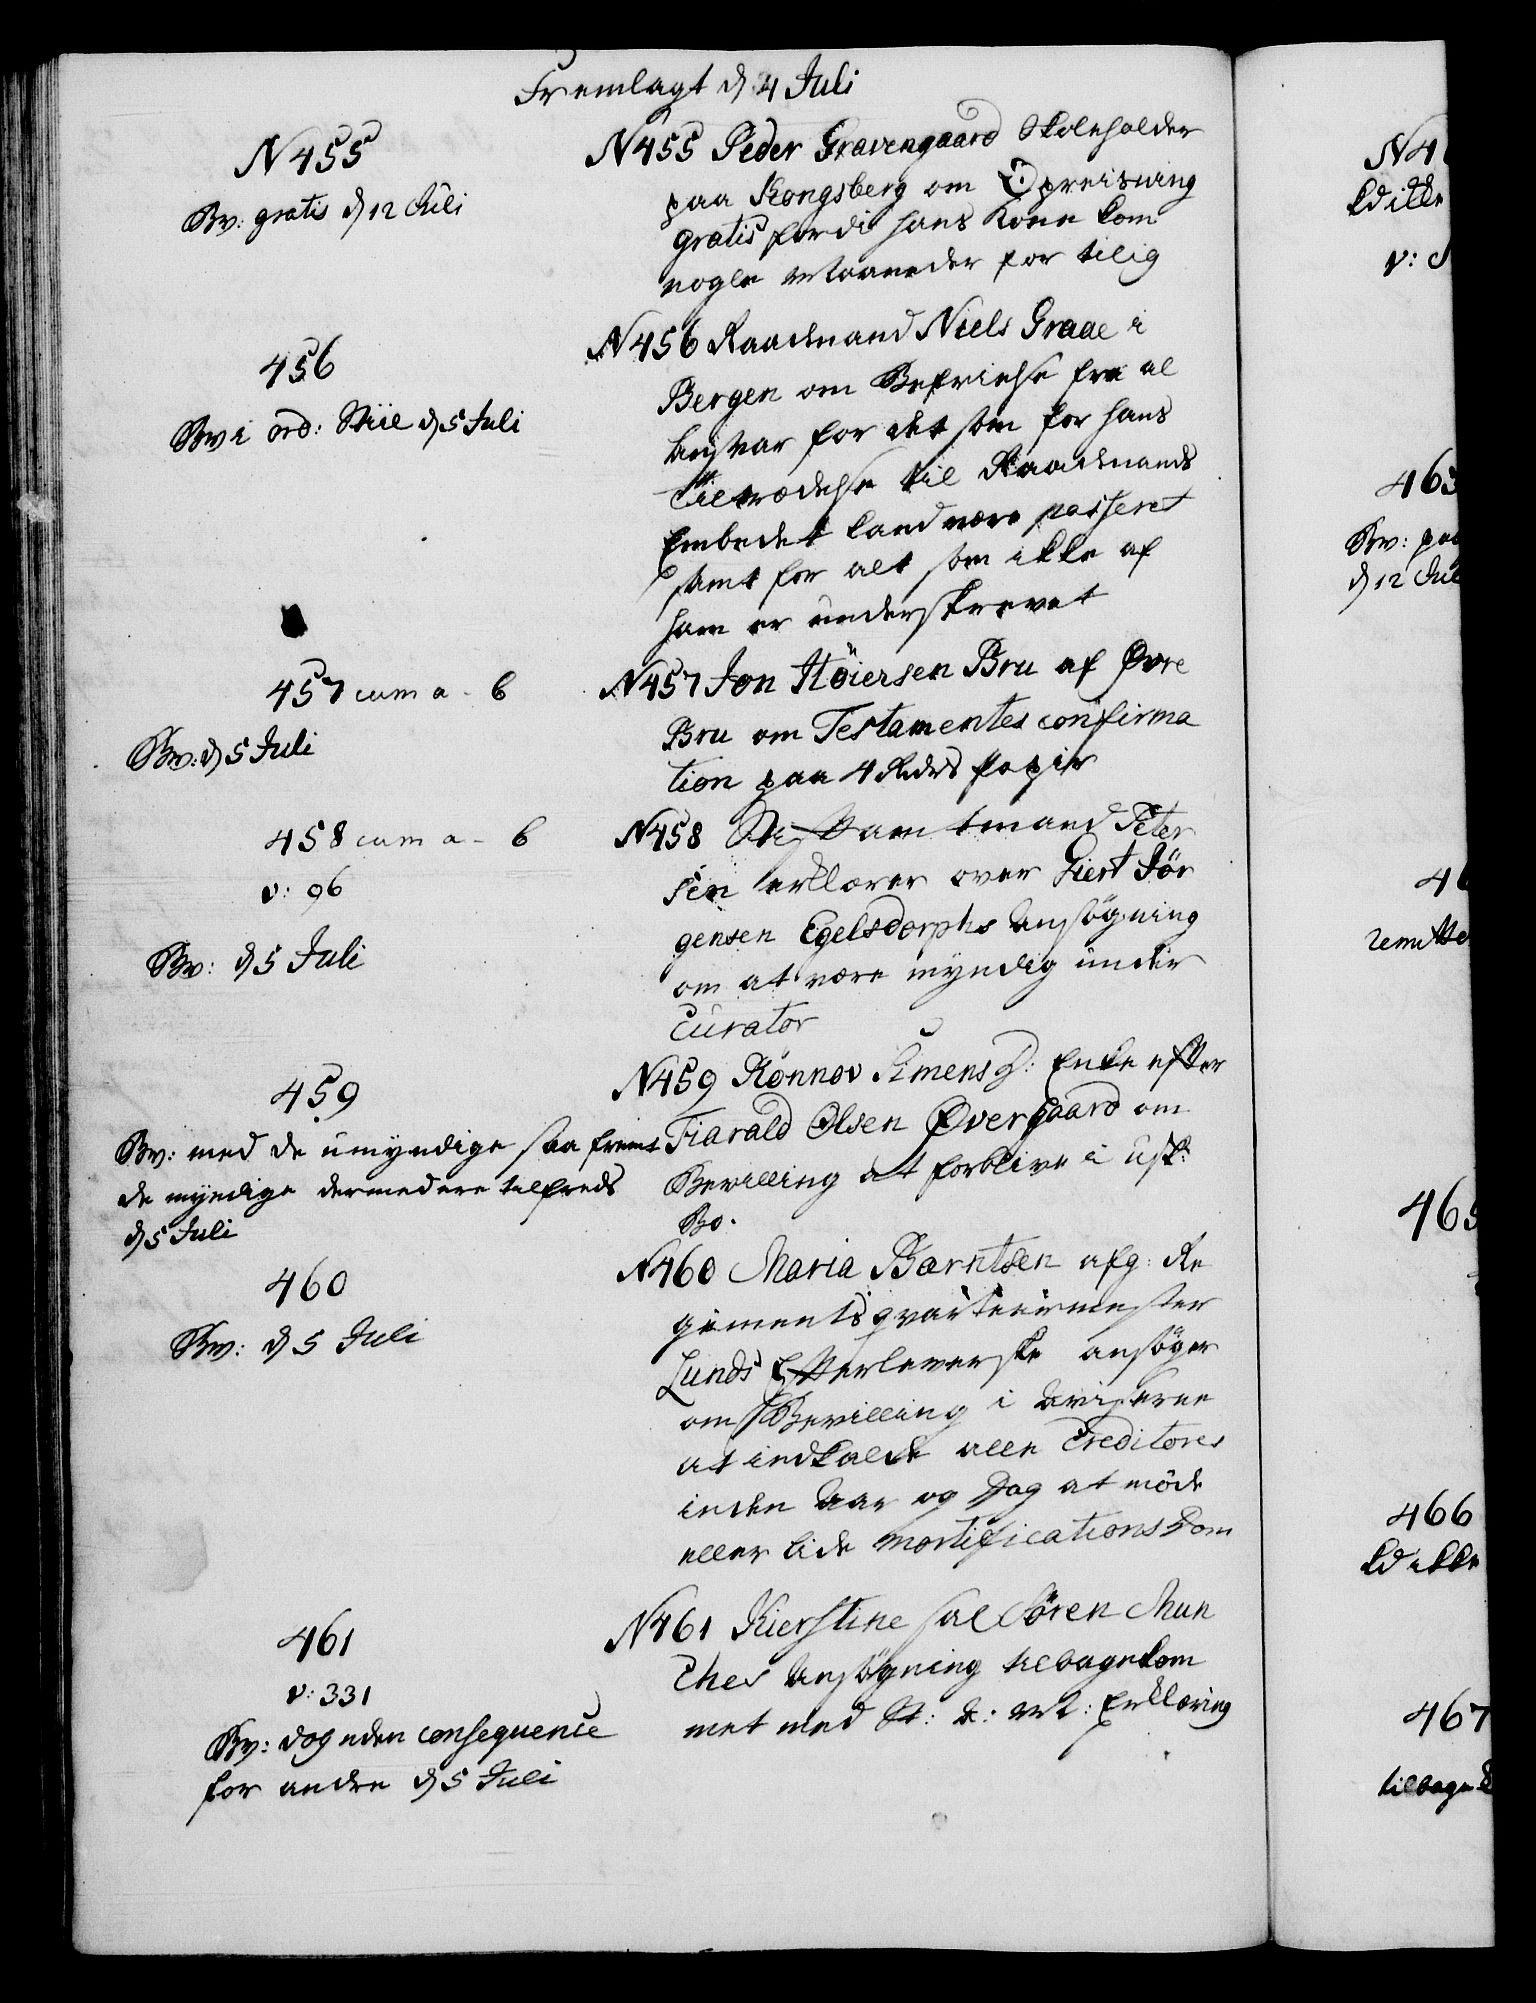 Fremlagt d 4 Juli
N 455
Bv: gratis d 12 Juli
N455 Peder Gravengaard Skoleholder
paa Kongsberg om Opreisning
gratis fordi hans Kone kom
nogle Maaneder for tilig
456
Bv i ord: Stiil d 5 Juli
N456 Raadmand Niels Graae i
Bergen om Befrielse fra al
Ansvar for det som for hans
Tiltrædelse til Raadmands
Embedet kand være passeret
samt for alt som ikke af
ham er underskrevet
457 cum a - b
Bv: d 5 Juli
N457 Jon Höiersen Bru af Øvre
Bru om Testamentes confirma
tion paa 4 Rdrs Papir
458 cum a - b
v: 96
Bv: d 5 Juli
N458 Stiftamtmand Peter
sen erklærer over Giert Jör
gensen Egelsdorphs Ansögning
om at være myndig under
Curator
459
Bv: med de umyndige saa fremt
de myndige dermed ere tilfreds
d 5 Juli
N459 Rönnov Simens d: Enke efter
Harald Olsen Øvergaard om
Bevilling at forblive i Usk:
Bo.
460
Bv: d 5 Juli
N460 Maria Bærntsen afg: Re
giments qvarteermester
Lunds Efterleverske ansöger
om Bevilling i Aviserne
at indkalde alle Creditores
inden Aar og Dag at möde
eller lide Mortifications Dom
461
v: 331
Bv: dog uden consequence
for andre d 5 Juli
N461 Kierstine sal Sören Mun
ches Ansögning tilbagekom
met med St: A: M: Erklæring
N 4
kd ikke
v:
463
Bv:
d 12 Jul
46
465
466
kd ikke
467
tilbage